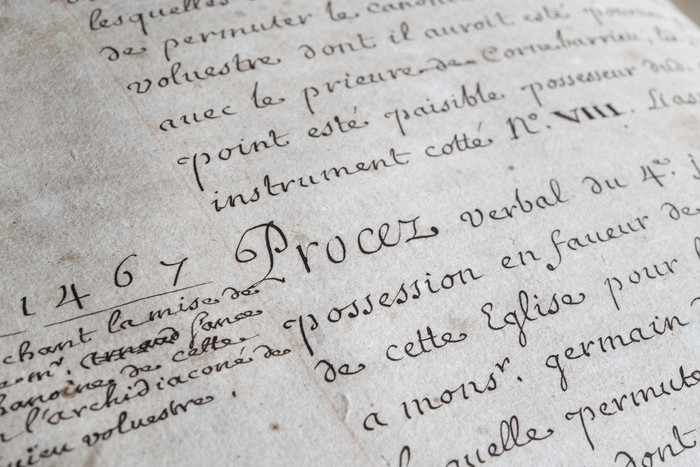 lesquelles
de permuter le canoni
voluestre dont il auroit esté pourveu
avec le prieure de Cornebarrieu, les
point esté paisible possesseur dud.
instrument cotté N°. VIII. Liass
1467
Procez verbal du 4e.
possession en faveur de
de cette Eglise pour
a monsr. germain
laquelle permuta
dont
chant la mise de
mr. Arnaud
hanoine de cette
l'archidiaconé de
rieu voluestre.